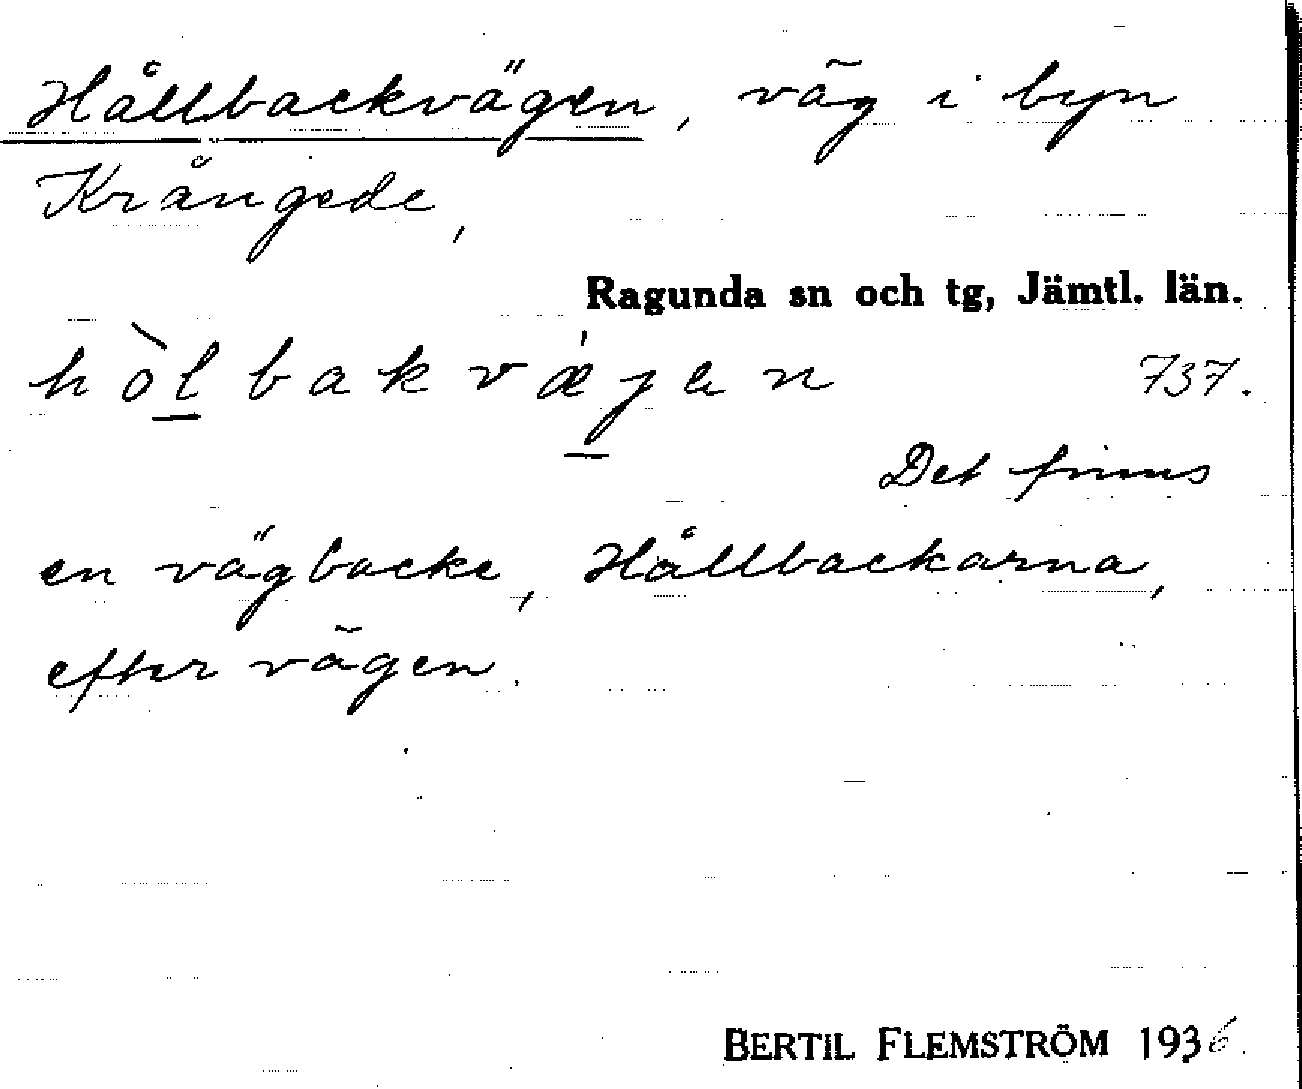 Hållbackvägen, väg i byn
Krångede,
Ragunda sn och tg, Jämtl. län.
hòl̲bakvǽ̲jen 737.
Det finns
en vägbacke, Hållbackarna,
efter vägen.
BERTIL FLEMSTRÖM 1936.